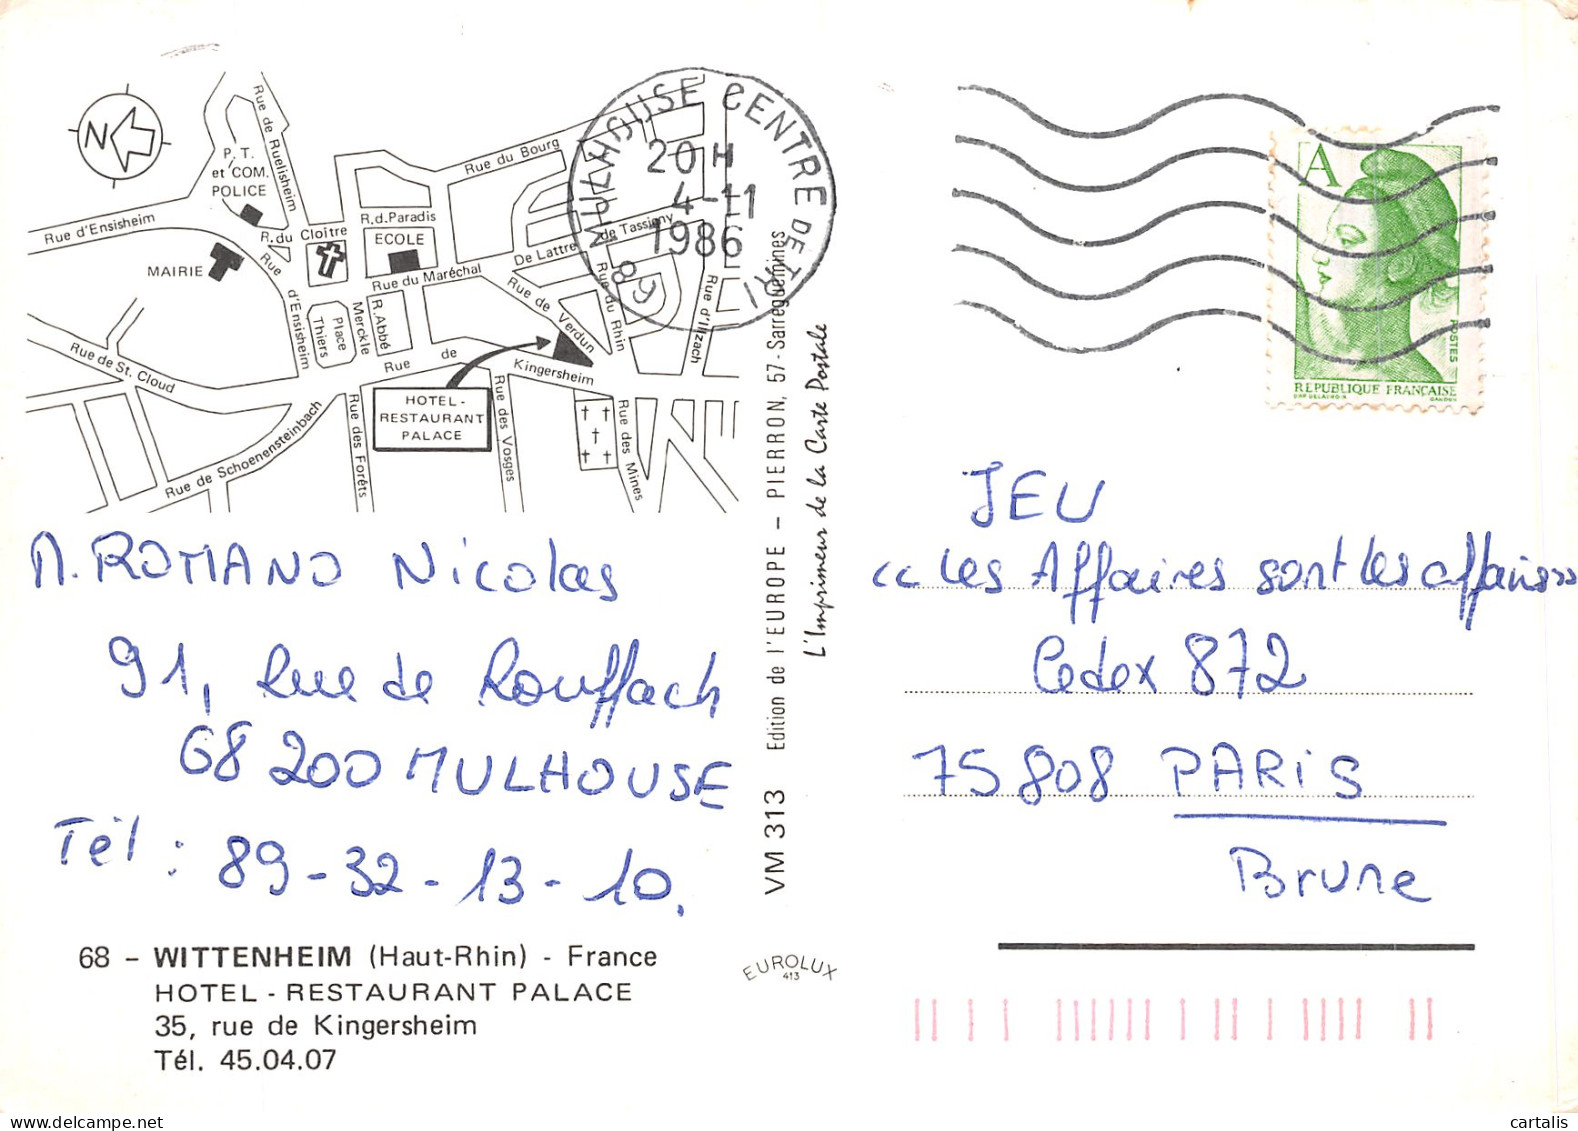 N
Rue de Ruelisheim
P. T.
et COM.
POLICE
Rue d'Ensisheim
MAIRIE
R. du Cloître
R.d. Paradis
ECOLE
Rue du Bourg
Rue du Maréchal
De Lattre
de Tassigny
Rue
d'Ensisheim
Place
Thiers
Merckle
R. Abbé
Rue de Verdun
Rue du Rhin
Rue d'Illzach
Rue de St. Cloud
Rue
de
Kingersheim
HOTEL-
RESTAURANT
PALACE
Rue de Schoenensteinbach
Rue des Forêts
Rue des Vosges
Rue des Mines
MULHOUSE CENTRE DE TRI
20 H
4-11
1986
68
A
POSTES
REPUBLIQUE FRANÇAISE
GANDON
M. ROMANO Nicolas
91, Rue de Rouffach
68 200 MULHOUSE
Tél : 89-32-13-10.
68 - WITTENHEIM (Haut-Rhin) - France
HOTEL - RESTAURANT PALACE
35, rue de Kingersheim
Tél. 45.04.07
VM 313 Edition de l'EUROPE - PIERRON, 57 - Sarreguemines
L'Imprimeur de la Carte Postale
EUROLUX
413
JEU
<< Les Affaires sont les affaires >>
Cedex 872
75808 PARIS
Brune
cartalis